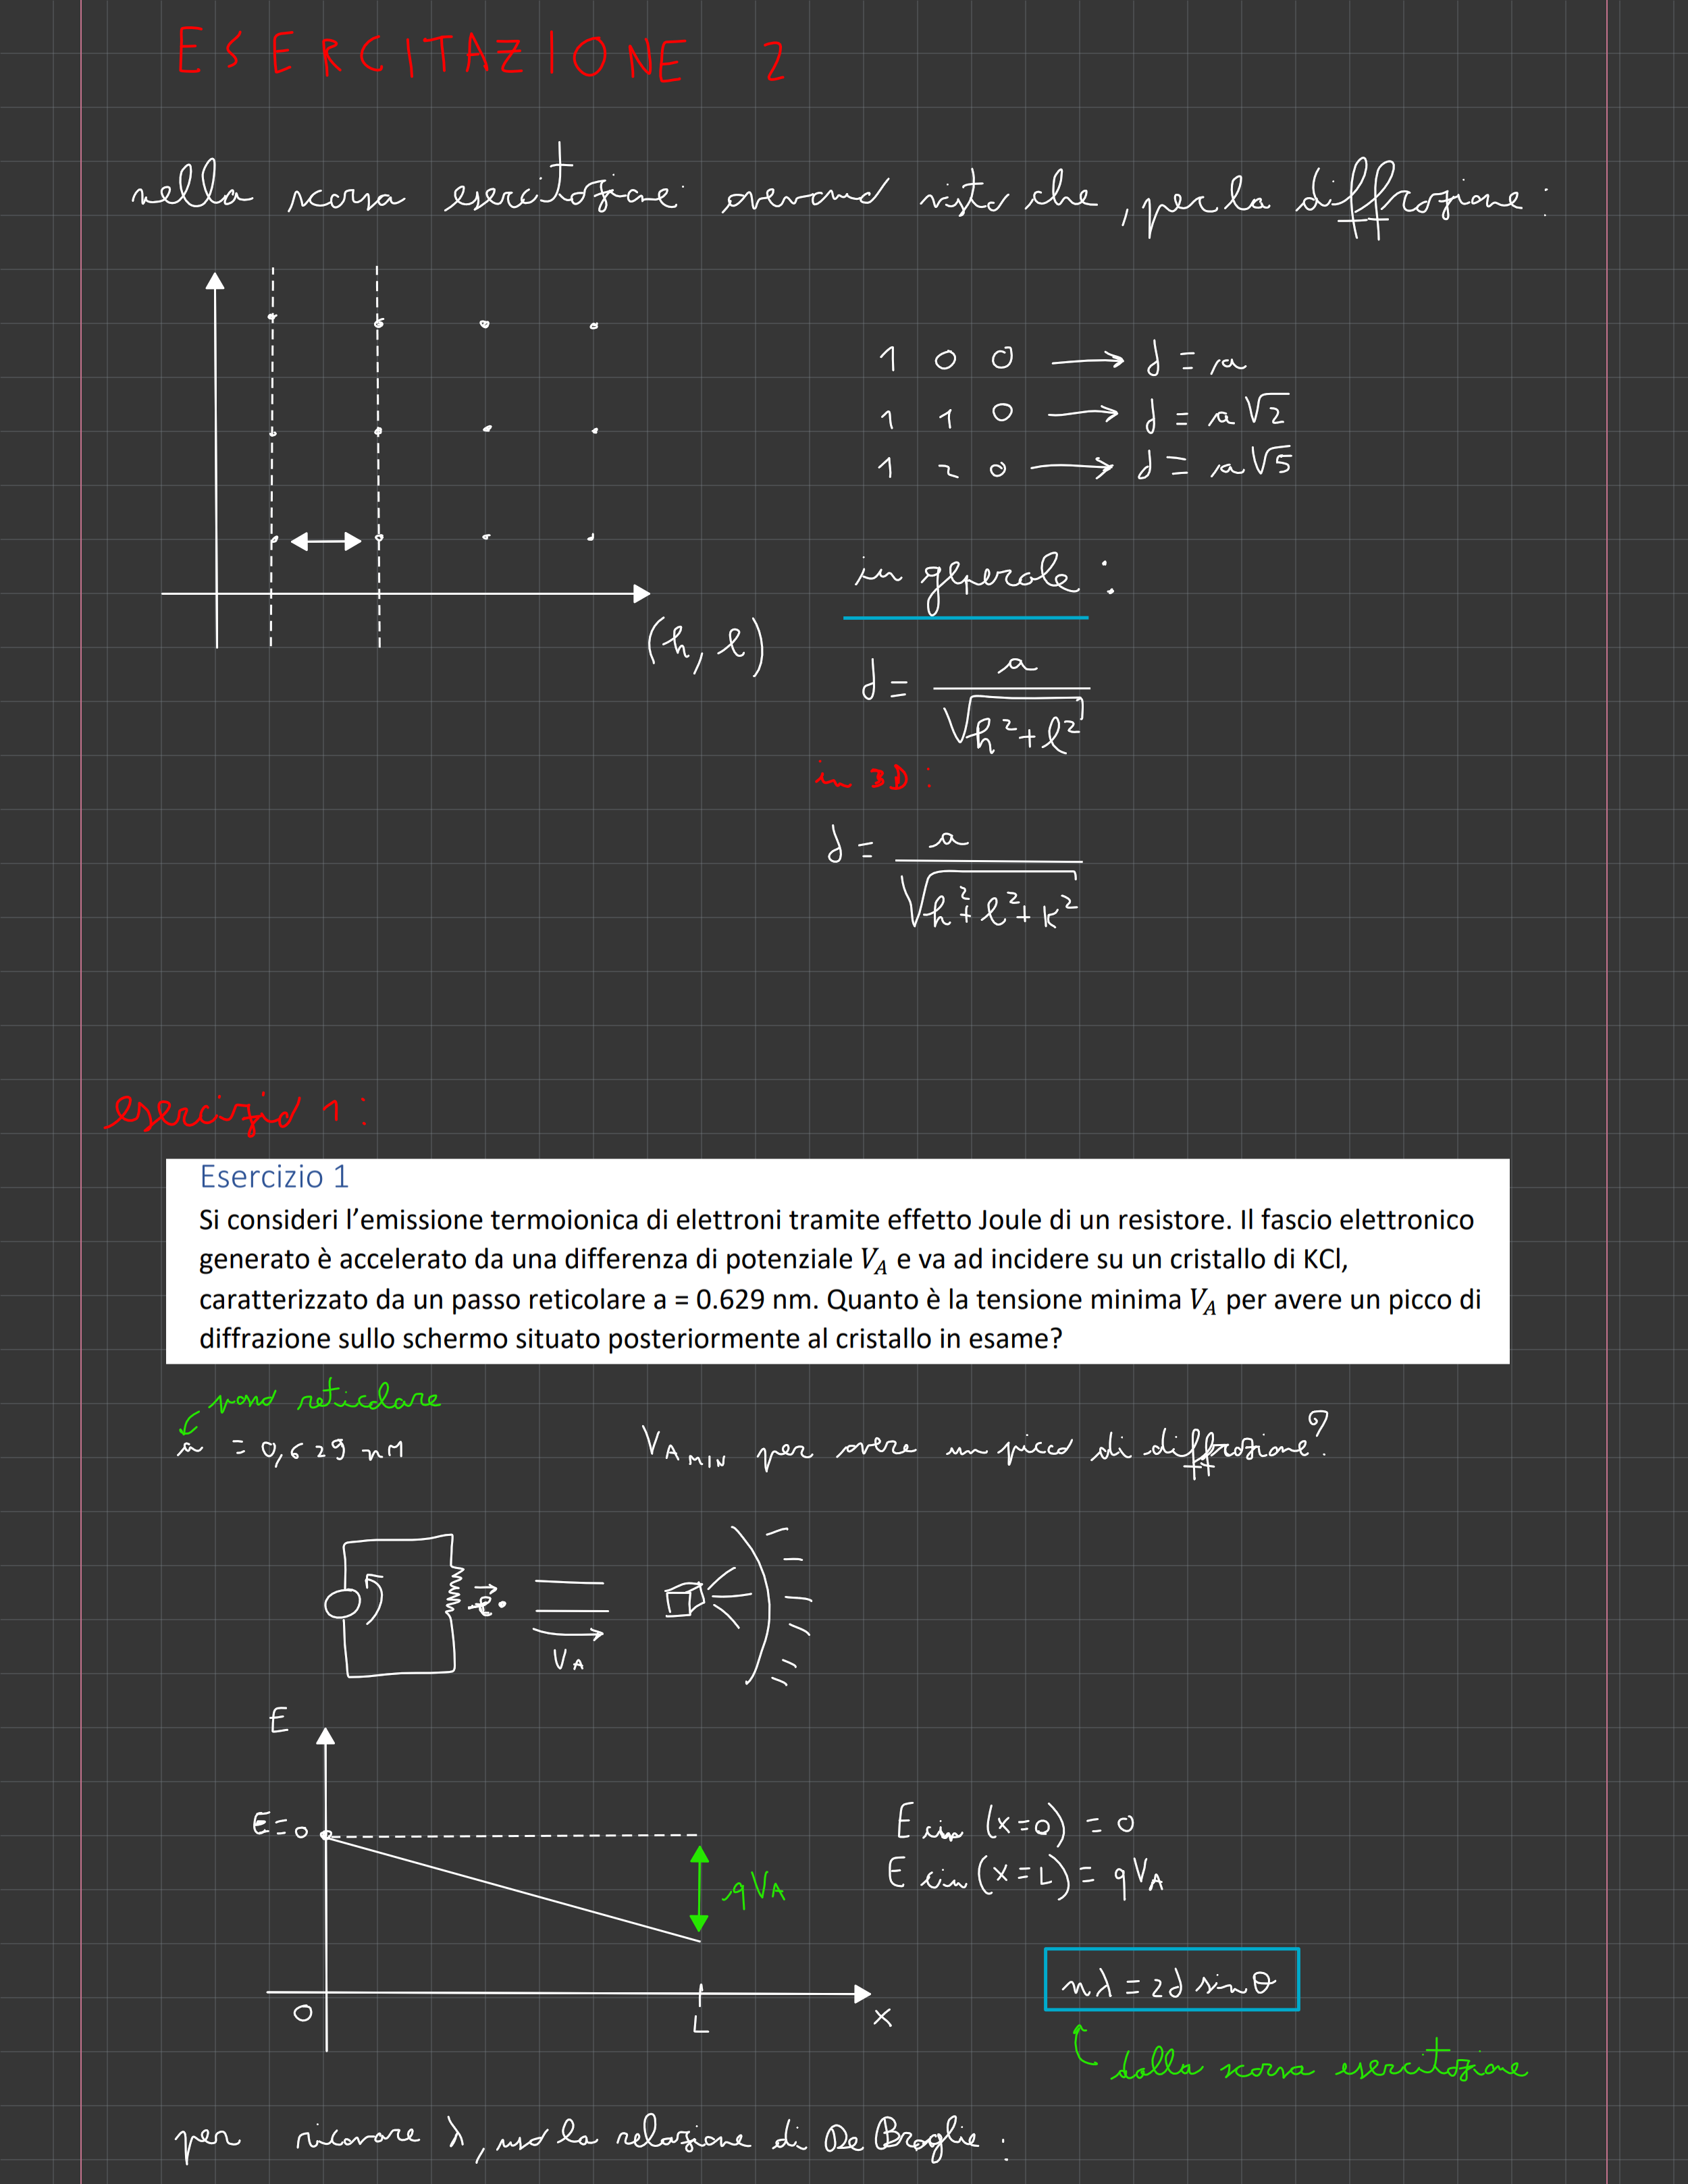 ESERCITAZIONE 2
nella scorsa esercitazione avevamo visto che, per la diffrazione:
1 0 0 → d = a
1 1 0 → d = a√2
1 2 0 → d = a√5
in generale:
(h, l)
d = a / √(h² + l²)
in 3D:
d = a / √(h² + l² + k²)
esercizio 1:
Esercizio 1
Si consideri l'emissione termoionica di elettroni tramite effetto Joule di un resistore. Il fascio elettronico
generato è accelerato da una differenza di potenziale V_A e va ad incidere su un cristallo di KCl,
caratterizzato da un passo reticolare a = 0.629 nm. Quanto è la tensione minima V_A per avere un picco di
diffrazione sullo schermo situato posteriormente al cristallo in esame?
passo reticolare
a = 0,629 nm
V_A MIN per avere un picco di diffrazione?
V_A
E
E=0
qV_A
E cin (x=0) = 0
E cin (x=L) = qV_A
nλ = 2d sinθ
O
L
x
dalla scorsa esercitazione
per ricavare λ, uso la relazione di De Broglie: